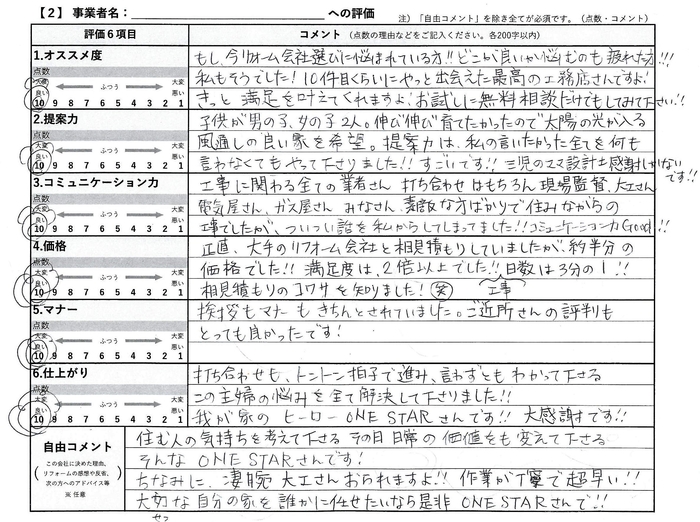 【2】事業者名： への評価 注）「自由コメント」を除き全てが必須です。（点数・コメント）
評価6項目 コメント（点数の理由などをご記入ください。各200字以内）
1.オススメ度
点数
大変良い ふつう 大変悪い
10 9 8 7 6 5 4 3 2 1
もし、今リフォーム会社選びに悩まれている方!!どこが良いか悩むのも疲れた方!!!
私もそうでした！10件目くらいにやっと出会えた最高の工務店さんですよ！
きっと満足を叶えてくれますよ！お試しに無料相談だけでもしてみて下さい!!
2.提案力
点数
大変良い ふつう 大変悪い
10 9 8 7 6 5 4 3 2 1
子供が男の子、女の子2人。伸び伸び育てたかったので太陽の光が入る
風通しの良い家を希望。提案力は、私の言いたかった全てを何も
言わなくてもやって下さりました!!すごいです!!三児のママ設計士感謝しかない
です!!
3.コミュニケーション力
点数
大変良い ふつう 大変悪い
10 9 8 7 6 5 4 3 2 1
工事に関わる全ての業者さん 打ち合わせはもちろん現場監督、大工さん
電気屋さん、ガス屋さん みなさん、素敵な方ばかりで住みながらの
工事でしたが、ついつい話を私からしてしまってました!!コミュニケーション力Good!!
4.価格
点数
大変良い ふつう 大変悪い
10 9 8 7 6 5 4 3 2 1
正直、大手のリフォーム会社と相見積もりしていましたが、約半分の
価格でした!!満足度は、2倍以上でした!!日数は3分の1!!
工事
相見積もりのコワサを知りました！(笑)
5.マナー
点数
大変良い ふつう 大変悪い
10 9 8 7 6 5 4 3 2 1
挨拶もマナーもきちんとされていました。ご近所さんの評判も
とっても良かったです！
6.仕上がり
点数
大変良い ふつう 大変悪い
10 9 8 7 6 5 4 3 2 1
打ち合わせも、トントン拍子で進み、言わずともわかって下さる
この主婦の悩みを全て解決して下さりました!!
我が家のヒーローONE STARさんです!!大感謝です!!
自由コメント
この会社に決めた理由、
リフォームの感想や反省、
次の方へのアドバイス等
※ 任意
住む人の気持ちを考えて下さる その日 日常の価値をも変えて下さる
そんなONE STARさんです！
ちなみに、凄腕 大工さんおられますよ!!作業が丁寧で超早い!!
大切な自分の家を誰かに任せたいなら是非ONE STARさんで!!
せつ